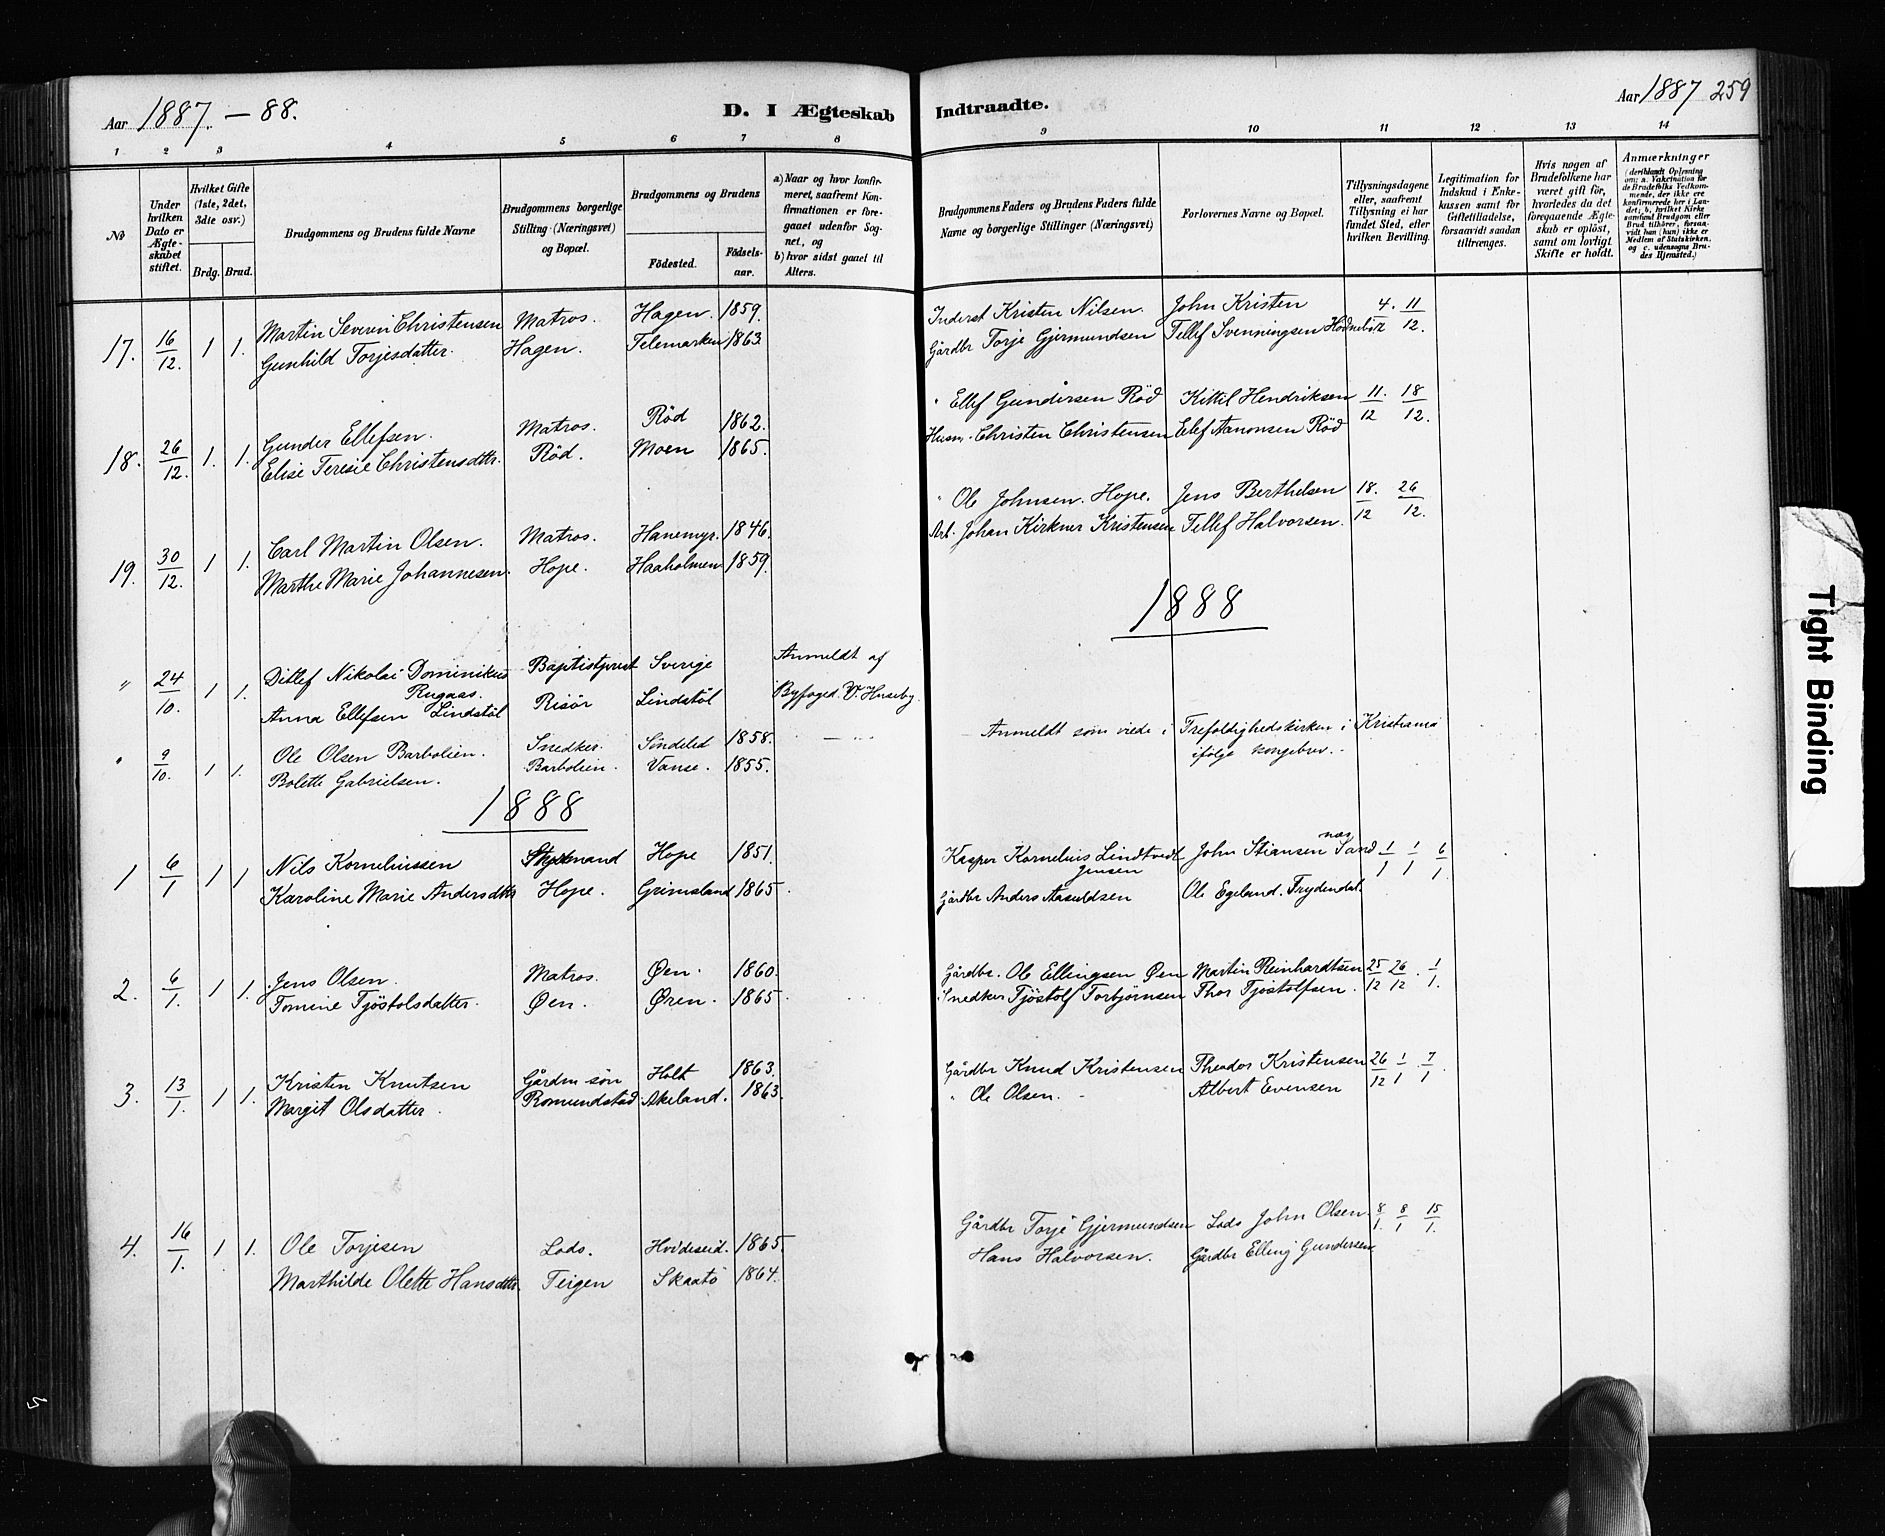 Aar 1887. — 88.
D. I Ægteskab Indtraadte.
Aar 1887 259
1 2 3 4 5 6 7 8 9 10 11 12 13 14
No
Under hvilken Dato er Ægteskabet stiftet.
Hvilket Gifte (1ste, 2det, 3die osv.)
Brdg. Brud.
Brudgommens og Brudens fulde Navne
Brudgommens borgerlige Stilling (Næringsvei) og Bopæl.
Brudgommens og Brudens
Födested. Födselsaar.
a) Naar og hvor konfirmeret, saafremt Konfirmationen er foregaaet udenfor Sognet, og
b) hvor sidst gaaet til Alters.
Brudgommens Faders og Brudens Faders fulde Navne og borgerlige Stillinger (Næringsvei)
Forlovernes Navne og Bopæl.
Tillysningsdagene eller, saafremt Tillysning ei har fundet Sted, efter hvilken Bevilling.
Legitimation for Indskud i Enkekassen samt for Giftetilladelse, forsaavidt saadan tiltrænges.
Hvis nogen af Brudefolkene har været gift för, hvorledes da det foregaaende Ægteskab er oplöst, samt om lovligt Skifte er holdt.
Anmærkninger
(deriblandt Oplysning om; a. Vakcination for de Brudefolks Vedkommende, der ikke ere konfirmerede her i Landet; b. hvilket Kirkesamfund Brudgom eller Brud tilhörer, forsaavidt han (hun) ikke er Medlem af Statskirken, og c. udensogns Brudes Hjemsted.)
17. 16/12. 1 1. Martin Severin Christensen Matros. Hagen. 1859. Inderst Kristen Nilsen. John Kristen 4. 11
Gunhild Torjesdatter. Hagen. Telemarken 1863 Gårdbr Torje Gjermundsen Tellef Svenningsen Hødnebö 12 12.
18. 26/12. 1. 1. Gunder Ellefsen. Matros. Röd 1862. " Ellef Gundersen Röd Kittil Hendriksen 11. 18
Elise Teresie Christensdttr. Röd. Moen 1865. Husm. Christen Christensen Elef Aanonsen Röd 12 12.
19. 30/12. 1 1. Carl Martin Olsen. Matros. Hanemyr. 1846. " Ole Johnsen. Hope. Jens Berthelsen 18. 26
Marthe Marie Johannesen. Hope. Haaholmen 1859. Arb. Johan Kirkner Kristensen Tellef Halvorsen. 12 12.
1888
" 24/10. 1 1. Ditlef Nikolai Dominikus Rugaas. Baptistprest Sverige Anmeldt af
Anna Ellefsen Lindstöl Risör Lindstöl Byfoged. V. Huseby.
" 9/10. 1 1. Ole Olsen Barbolien. Snedker. Söndeled 1858. — " — Anmeldt som viede i Trefoldighedskirken i Kristiania
Bolette Gabrielsen. Barbolien. Vanse. 1855. ifölge kongebrev.
1888
1 6/1 1 1 Nils Korneliussen Styrmand Hope 1851. Kasper Kornelius Lindtvedt Jensen John Stiansen Sand næs 1/1 1/1 6/1.
Karoline Marie Andersdttr Hope. Grimsland 1865. Gårdbr Anders Aasuldsen Ole Egeland. Frydendal.
2. 6/1. 1 1. Jens Olsen. Matros. Øen. 1860. Gårdbr. Ole Ellingsen Øen Martin Reinhardtsen 25 26 1
Tomine Tjöstolsdatter. Øen. Øren. 1865. Snedker Tjöstolf Torbjörnsen Thor Tjöstolfsen. 12 12 1.
3. 13/1. 1 1. Kristen Knutsen Gårdm sön Holt 1863. Gårdbr Knud Kristensen Theodor Kristensen 26 1 7
Margit Olsdatter. Romundstad Akeland. 1863. " Ole Olsen. Albert Evensen 12 1 1.
4. 16/1. 1 1. Ole Torjesen Lods. Hvideseid. 1865. Gårdbr Torje Gjermundsen Lods John Olsen. 8 8 15
Marthilde Olette Hansdttr. Teigen Skaatö 1864. Hans Halvorsen. Gårdbr Elling Gundersen 1. 1 1.
Tight Binding